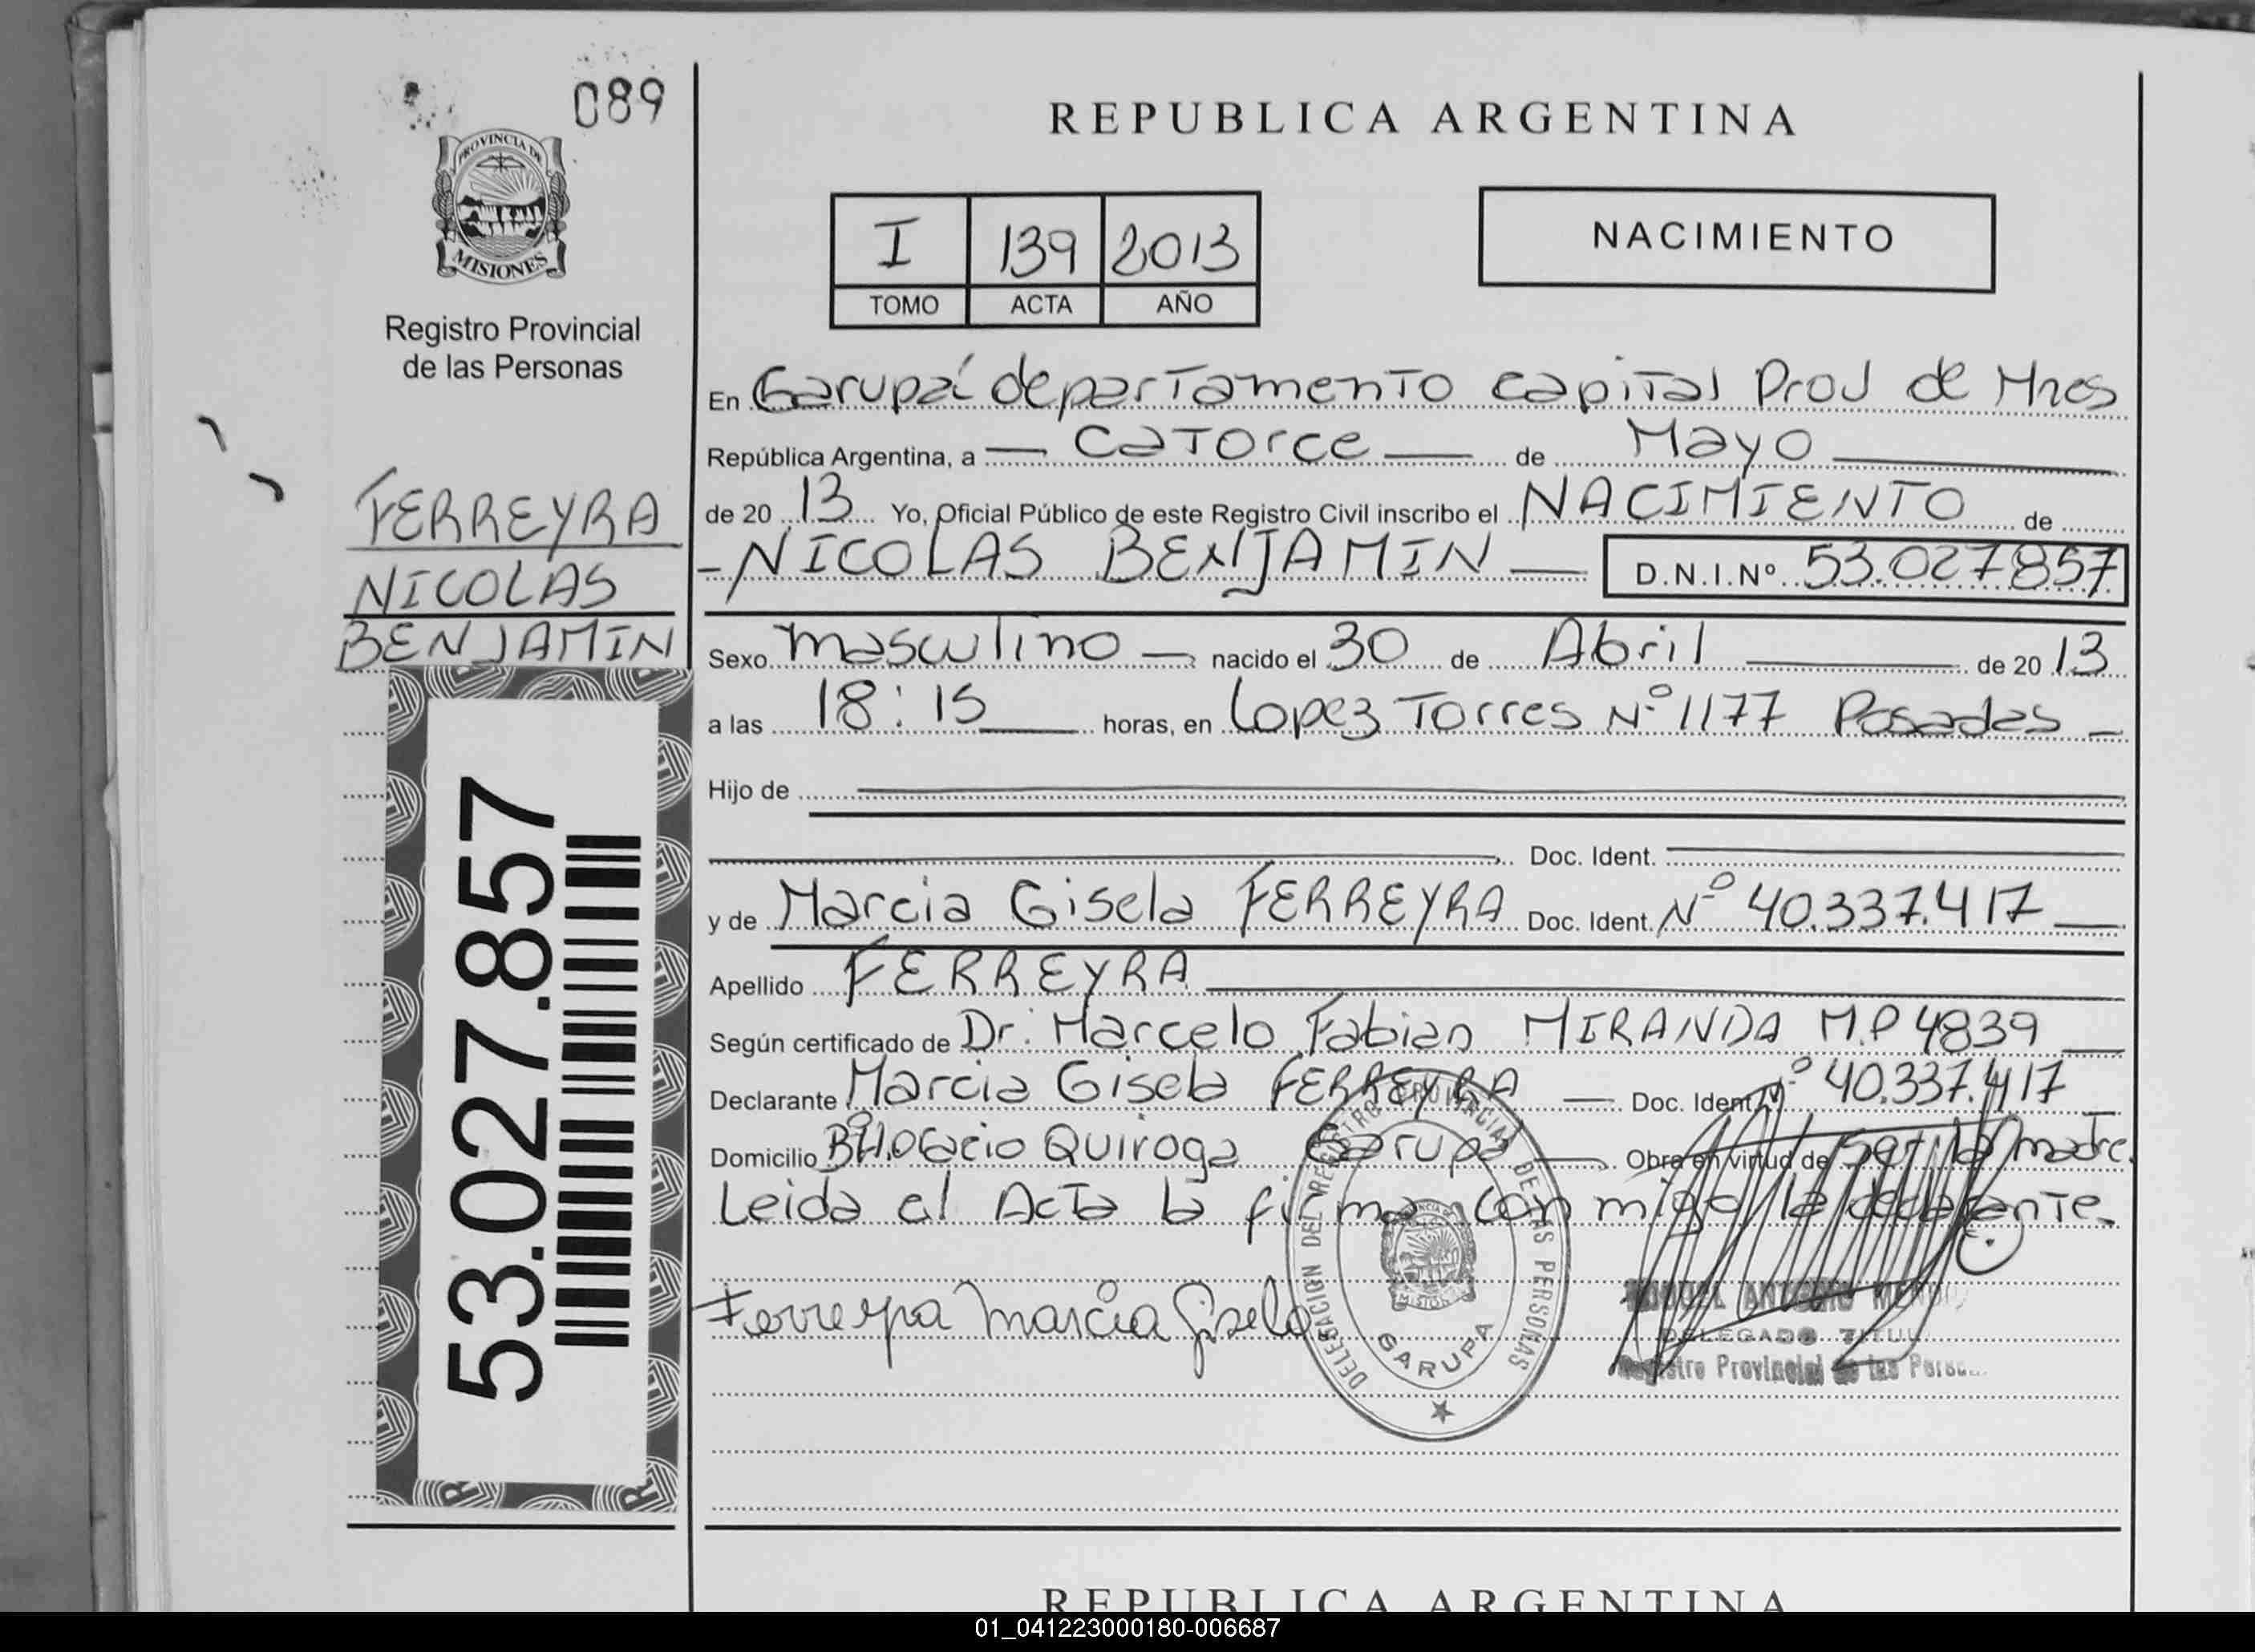 089
PROVINCIA DE
MISIONES
Registro Provincial
de las Personas
FERREYRA
NICOLAS
BENJAMIN
53.027.857
REPUBLICA ARGENTINA
I 139 2013
TOMO ACTA AÑO
NACIMIENTO
En Garupá departamento capital Prov de Mnes
República Argentina, a — catorce — de Mayo
de 20 13 Yo, Oficial Público de este Registro Civil inscribo el NACIMIENTO de
- NICOLAS BENJAMIN — D.N.I.Nº 53.027857
Sexo masculino — nacido el 30 de Abril de 20 13
a las 18:15 horas, en Lopez Torres Nº 1177 Posadas -
Hijo de
Doc. Ident.
y de Marcia Gisela FERREYRA Doc. Ident. Nº 40.337.417
Apellido FERREYRA
Según certificado de Dr. Marcelo Fabian MIRANDA M.P 4839
Declarante Marcia Gisela FERREYRA — Doc. Ident Nº 40.337.417
Domicilio Bº Horacio Quiroga Garupá — Obra en virtud de ser la madre.
Leida el Acta la firma con migo la declarante.
Ferreyra Marcia Gisela
DELEGACION DEL REGISTRO PROVINCIAL DE LAS PERSONAS
GARUPA
DELEGADO
Registro Provincial de las
REPUBLICA ARGENTINA
01_041223000180-006687